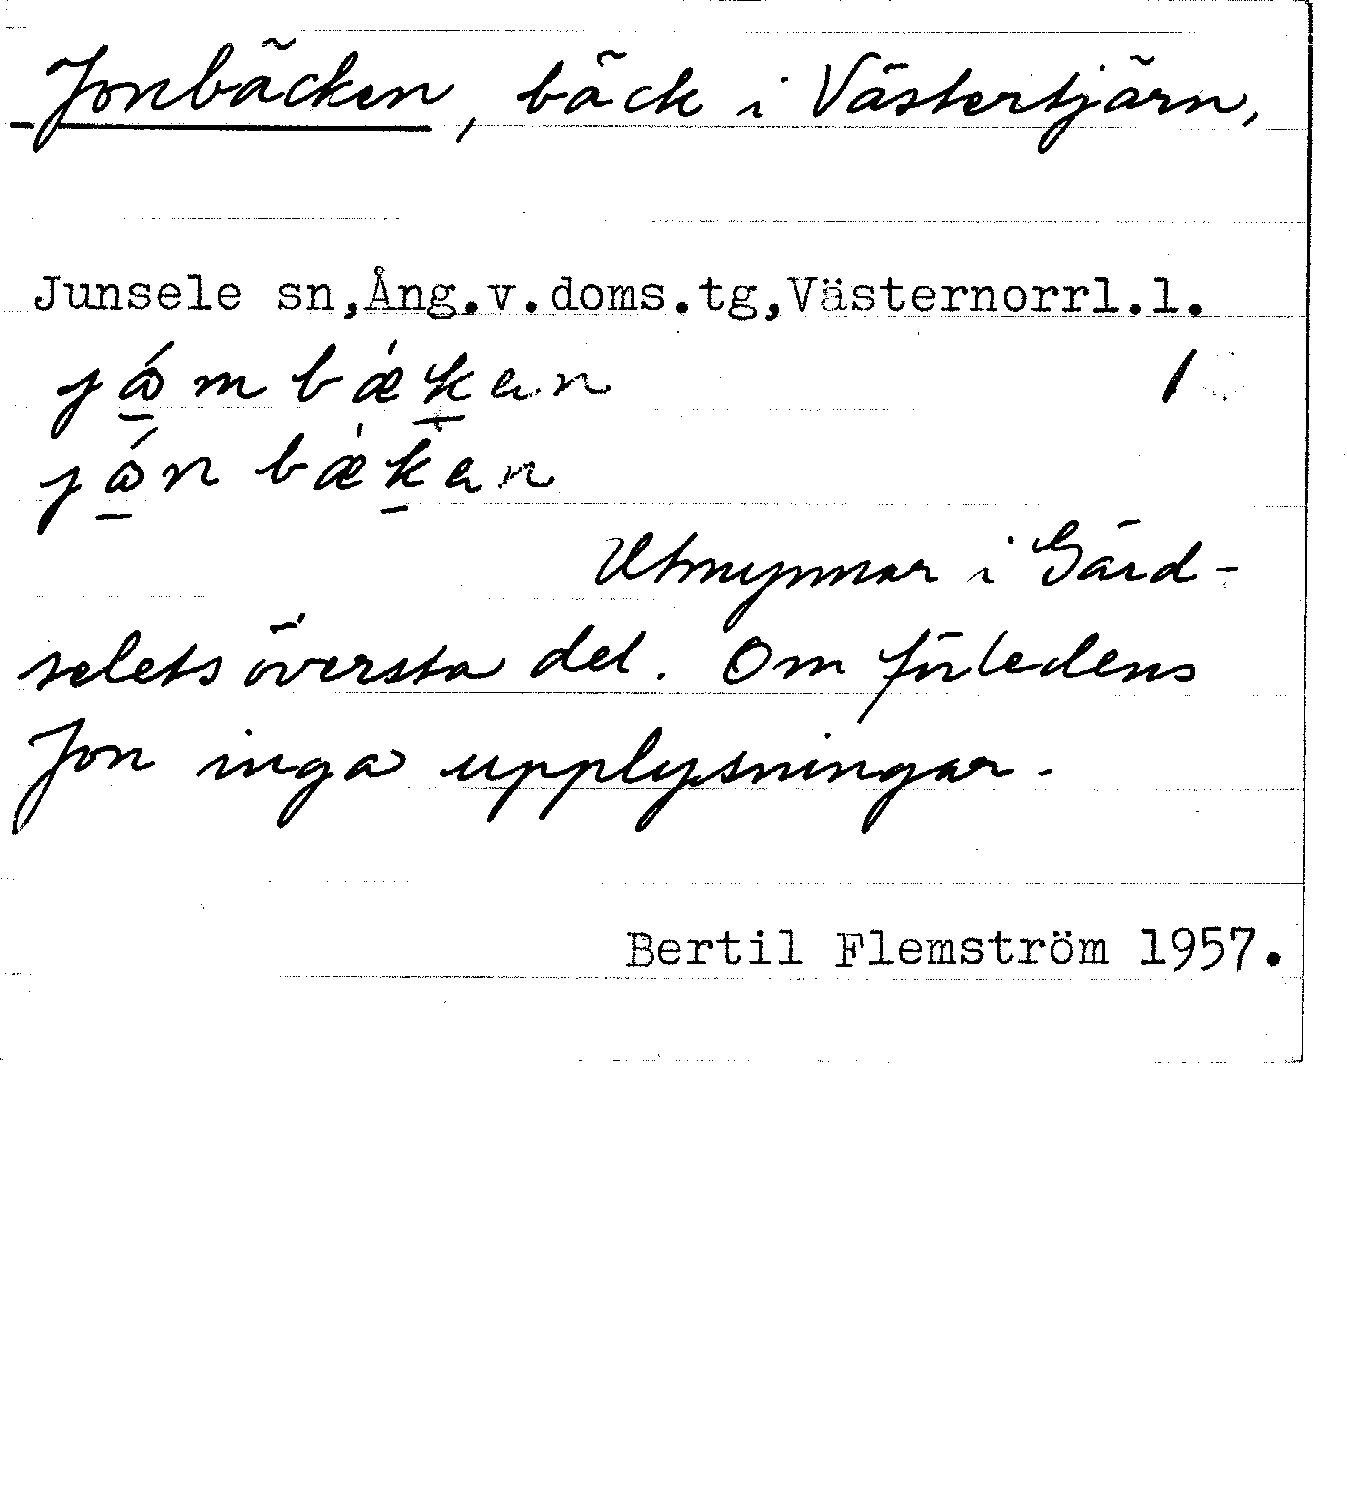 Jonbäcken, bäck i Västertjärn,
Junsele sn,Ång.v.doms.tg,Västernorrl.l.
jåmbækan 1
jånbækan
Utmynnar i Gärd-
selets översta del. Om förledens
Jon inga upplysningar.
Bertil Flemström 1957.